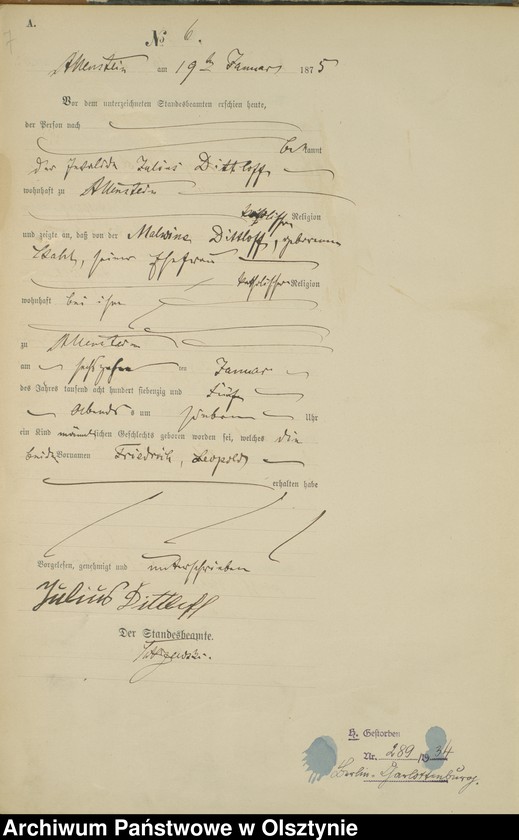 A.
7
№ 6.
Allenstein am 19ten Januar 1875
Vor dem unterzeichneten Standesbeamten erschien heute,
der Person nach
bekannt
der Invalide Julius Dittloff
wohnhaft zu Allenstein
katholischer Religion
und zeigte an, daß von der Malwine Dittloff, geborenen
seiner Ehefrau
katholischer Religion
wohnhaft bei ihm
zu Allenstein
am sechszehnten Januar
des Jahres tausend acht hundert siebenzig und fünf
Abends um sieben Uhr
ein Kind männlichen Geschlechts geboren worden sei, welches die
beiden Vornamen Friedrich, Leopold
erhalten habe
Vorgelesen, genehmigt und unterschrieben
Julius Dittloff
Der Standesbeamte.
H. Gestorben
Nr. 289/1934
Berlin-Charlottenburg.
Archiwum Państwowe w Olsztynie